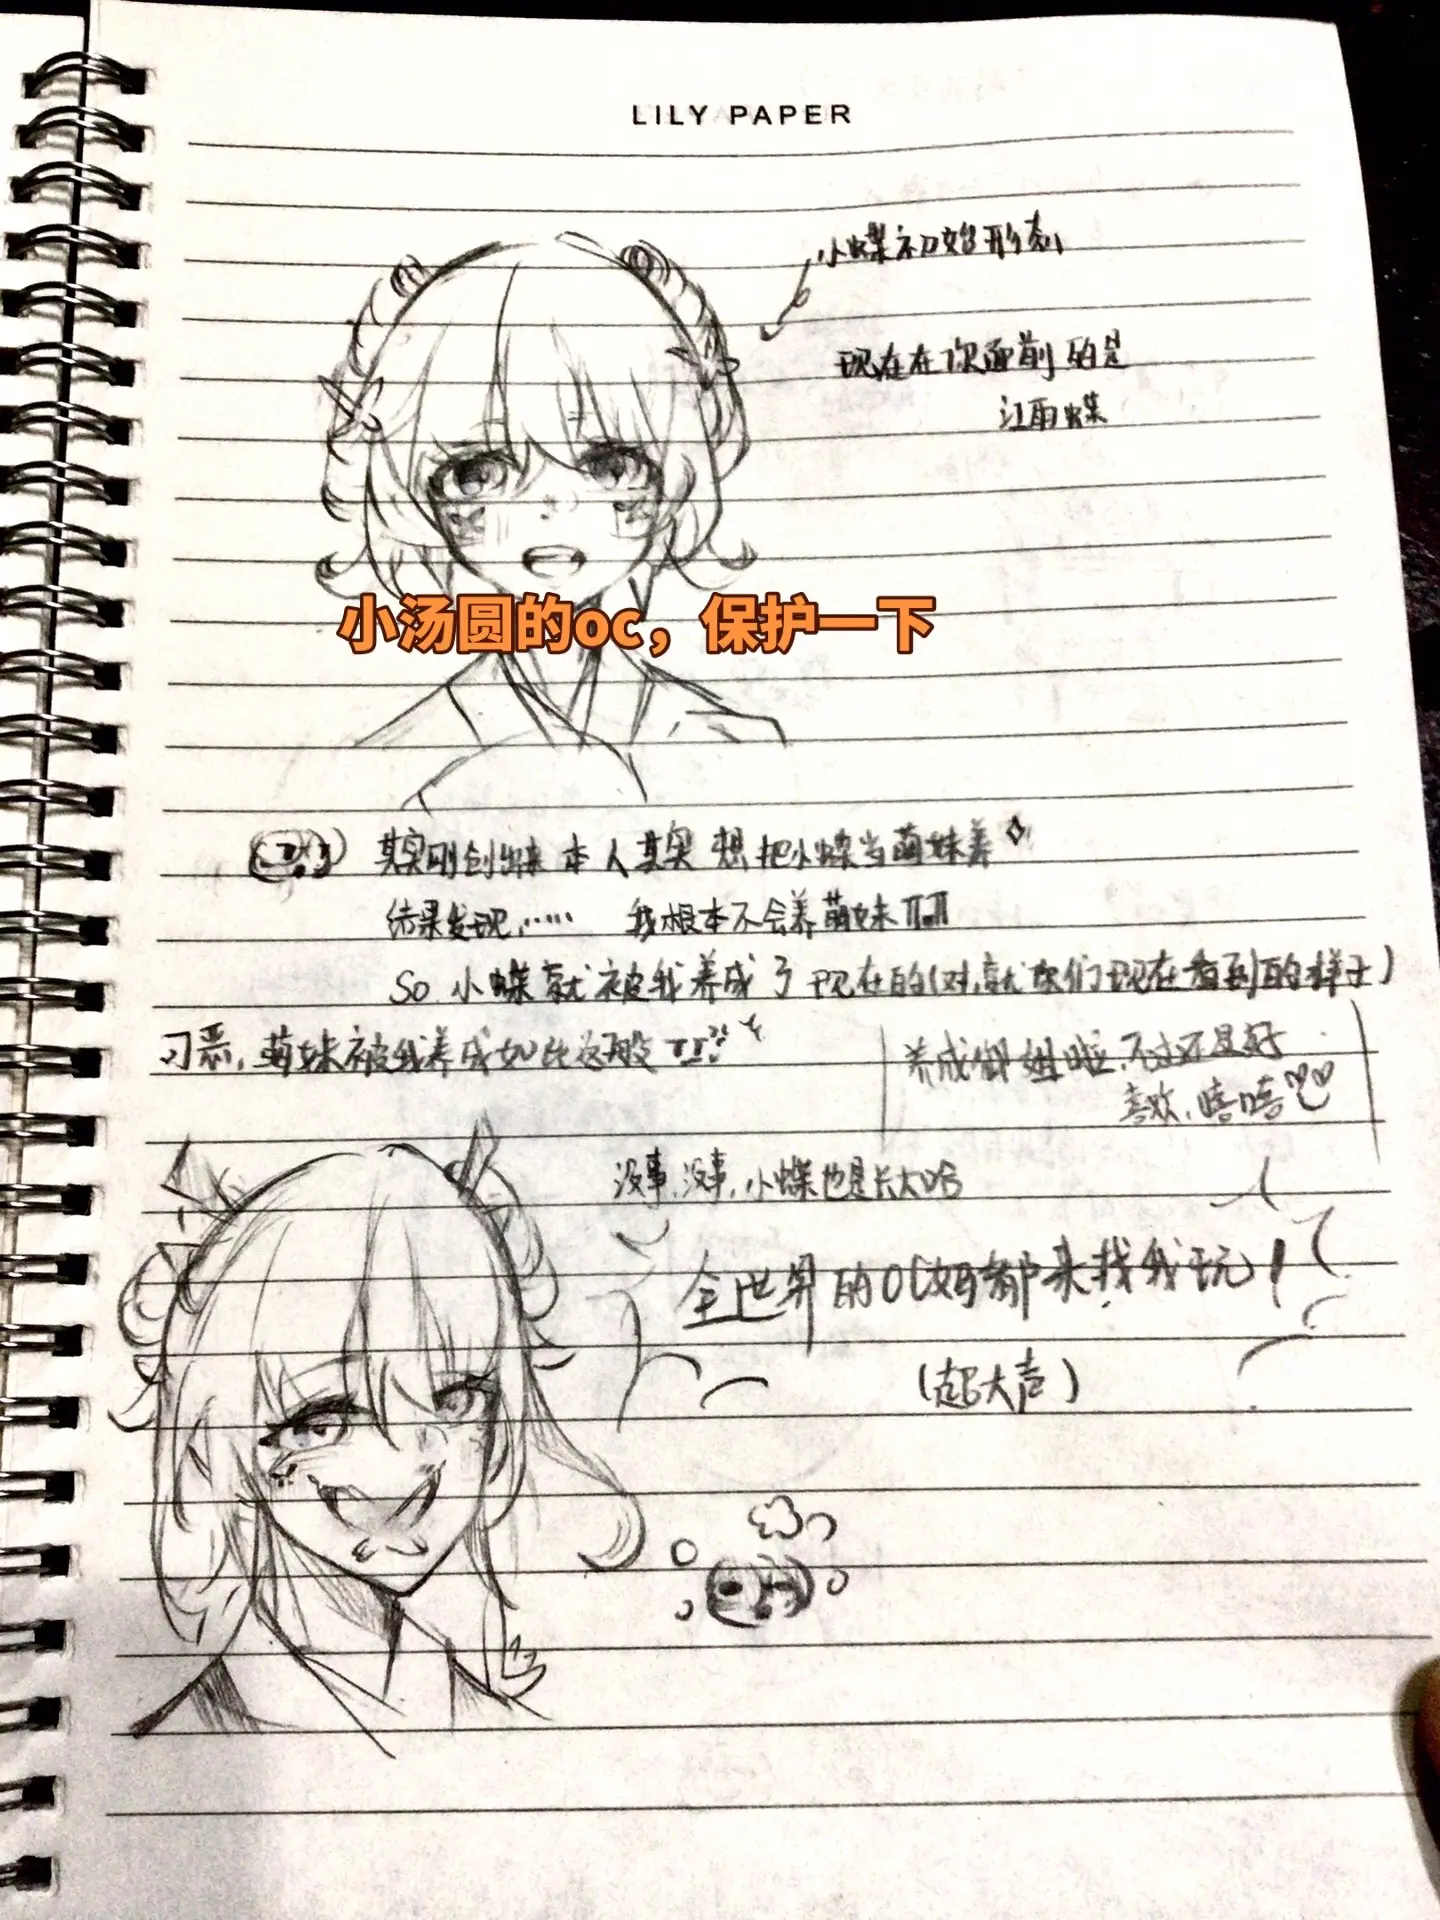 LILY PAPER
小蝶初始形态
现在在你面前的是
江雨蝶
小汤圆的oc，保护一下
其实刚创出来本人其实想把小蝶当萌妹养
结果发现，…… 我根本不会养萌妹
So 小蝶就被我养成了现在的(对，就你们现在看到的样子)
可恶，萌妹被我养成如此这般
养成御姐啦，不过还是好
喜欢，嘻嘻
没事，没事，小蝶也是长大哈
全世界的OC妈都来找我玩！
(超大声)